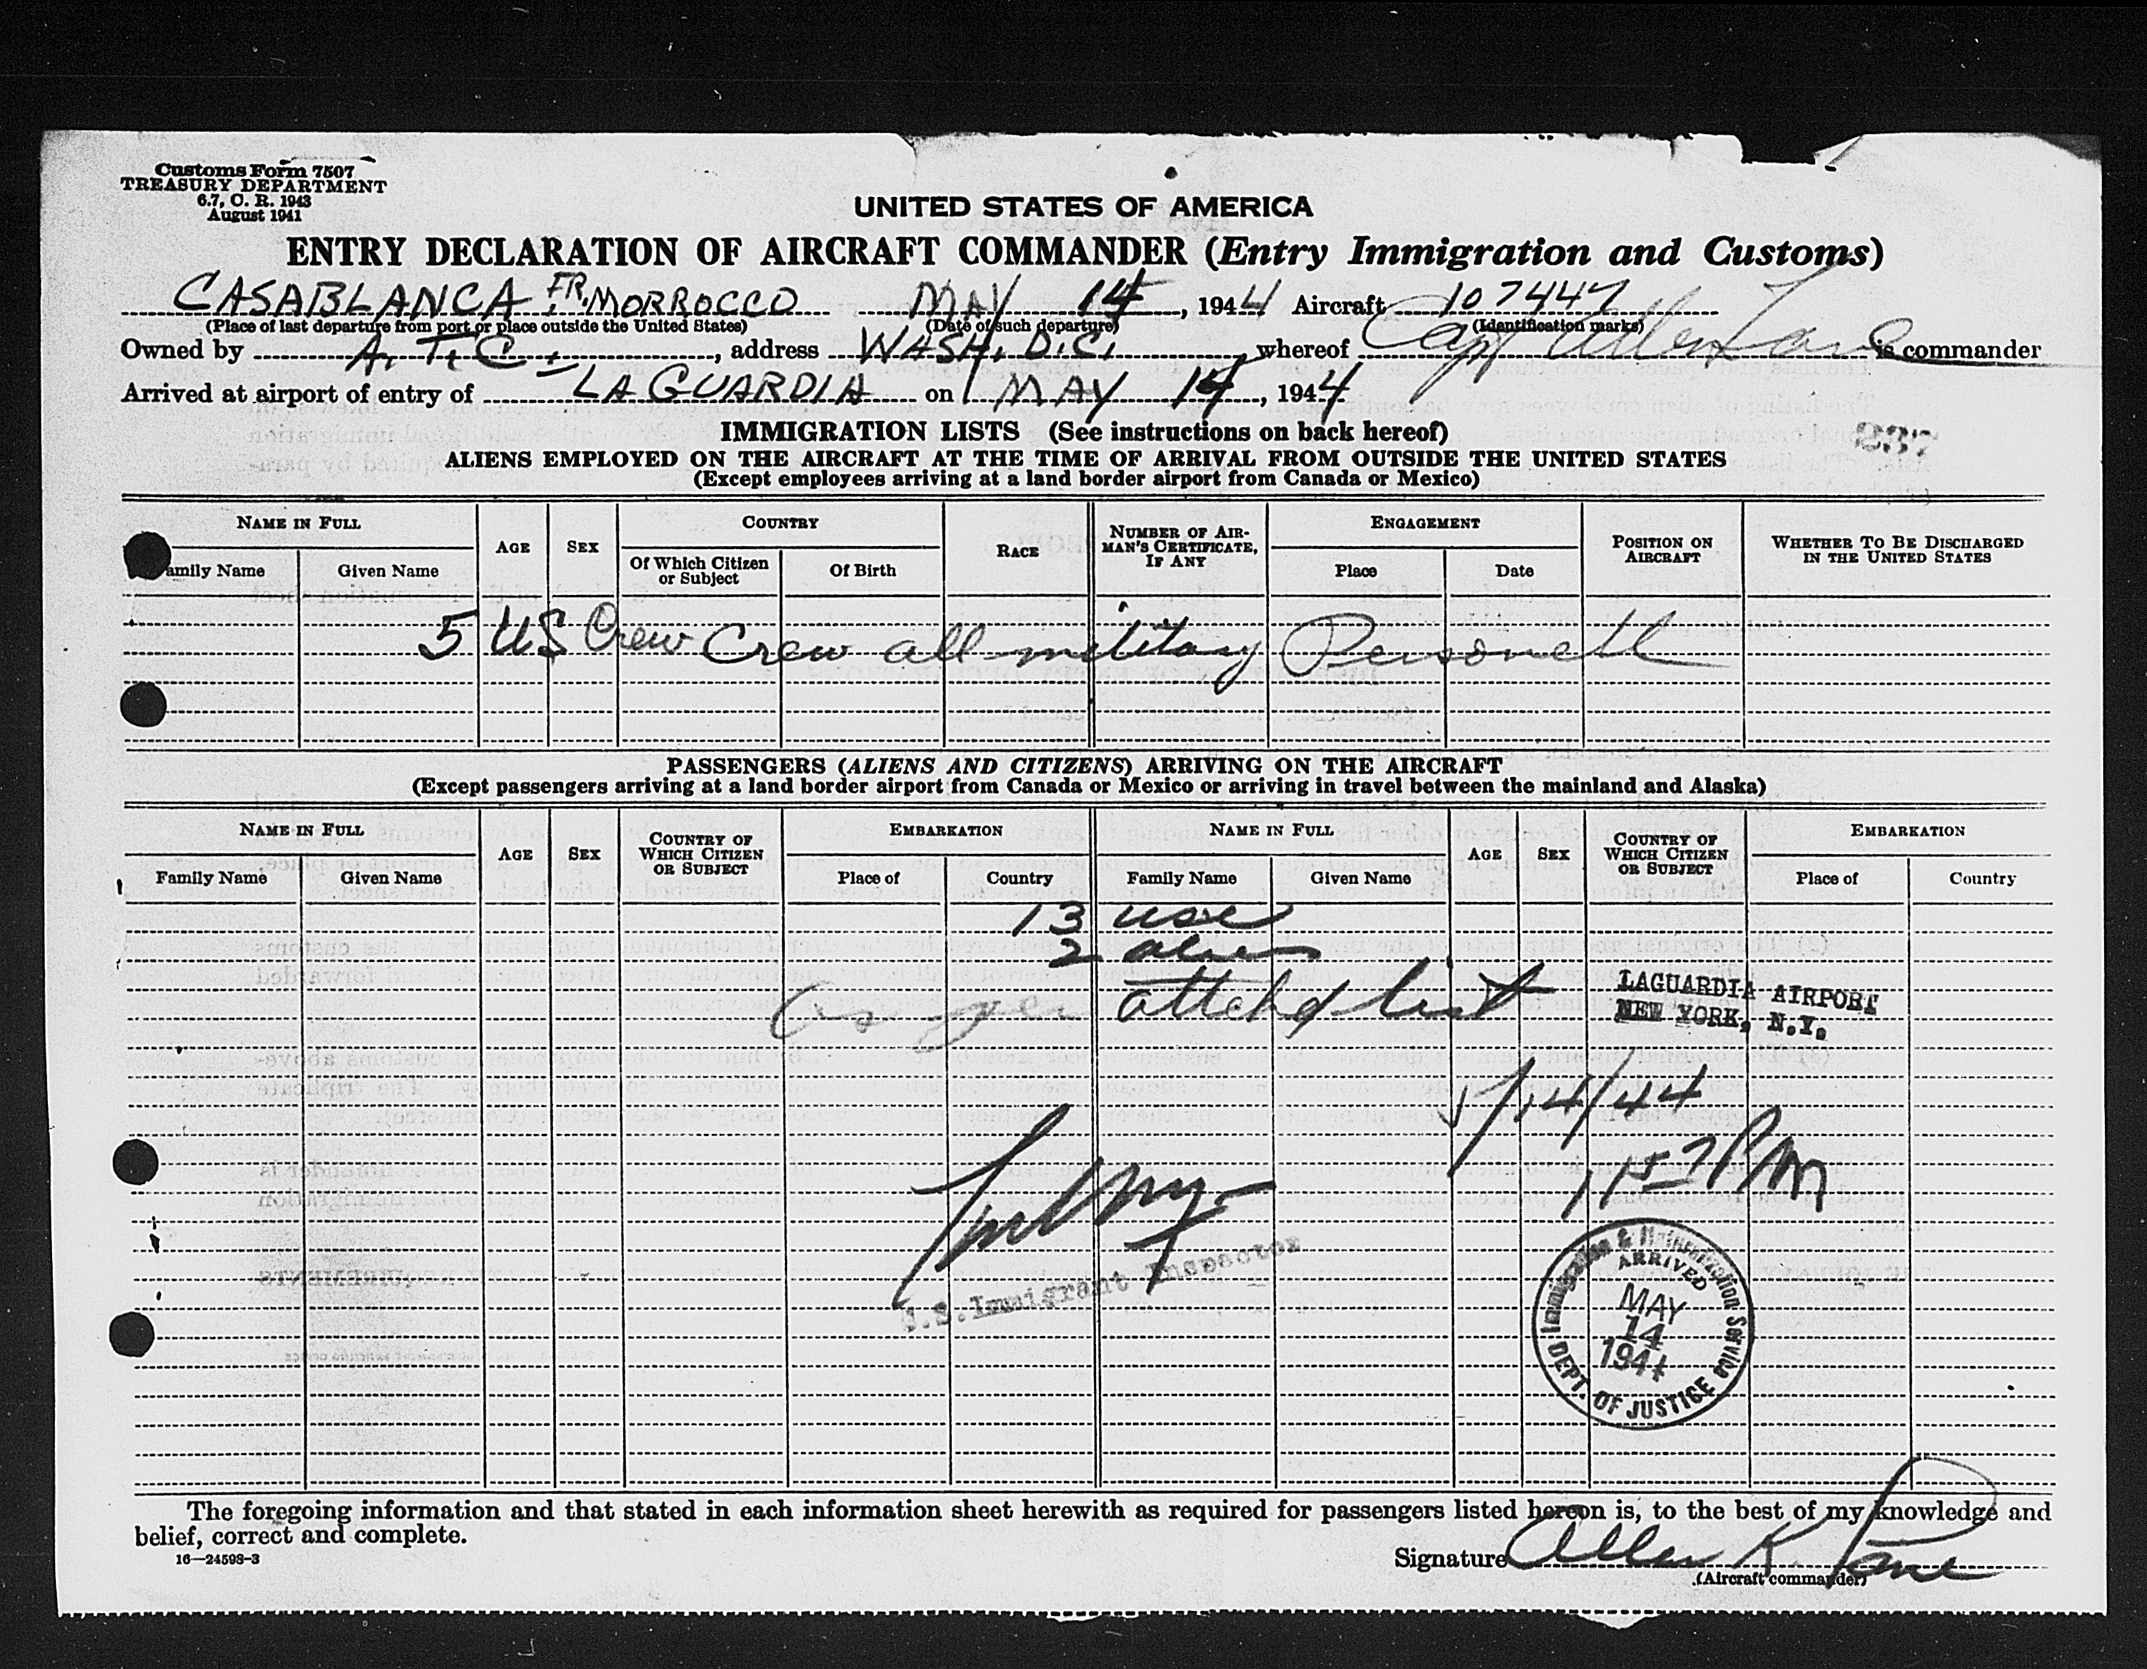 Customs Form 7507
TREASURY DEPARTMENT
6.7, C. R. 1943
August 1941
UNITED STATES OF AMERICA
ENTRY DECLARATION OF AIRCRAFT COMMANDER (Entry Immigration and Customs)
CASABLANCA FR. MORROCCO MAY 14, 1944 Aircraft 107447
(Place of last departure from port or place outside the United States) (Date of such departure) (Identification marks)
Owned by A. T. C., address WASH, D.C., whereof Capt Allen Lane is commander
Arrived at airport of entry of LA GUARDIA on MAY 14, 1944
IMMIGRATION LISTS (See instructions on back hereof)
237
ALIENS EMPLOYED ON THE AIRCRAFT AT THE TIME OF ARRIVAL FROM OUTSIDE THE UNITED STATES
(Except employees arriving at a land border airport from Canada or Mexico)
NAME IN FULL AGE SEX COUNTRY RACE NUMBER OF AIRMAN'S CERTIFICATE, IF ANY ENGAGEMENT POSITION ON AIRCRAFT WHETHER TO BE DISCHARGED IN THE UNITED STATES
amily Name Given Name Of Which Citizen or Subject Of Birth Place Date
5 US Crew Crew all military Personell
PASSENGERS (ALIENS AND CITIZENS) ARRIVING ON THE AIRCRAFT
(Except passengers arriving at a land border airport from Canada or Mexico or arriving in travel between the mainland and Alaska)
NAME IN FULL AGE SEX COUNTRY OF WHICH CITIZEN OR SUBJECT EMBARKATION NAME IN FULL AGE SEX COUNTRY OF WHICH CITIZEN OR SUBJECT EMBARKATION
Family Name Given Name Place of Country Family Name Given Name Place of Country
13 usc
2 alien
as per attchd list
LAGUARDIA AIRPORT
NEW YORK, N.Y.
5/14/44
1157 PM
U.S. Immigrant Inspector
Immigration & Naturalization Service
ARRIVED
MAY
14
1944
DEPT. OF JUSTICE
The foregoing information and that stated in each information sheet herewith as required for passengers listed hereon is, to the best of my knowledge and
belief, correct and complete.
16—24593-3
Signature Allen K. Lane
(Aircraft commander)